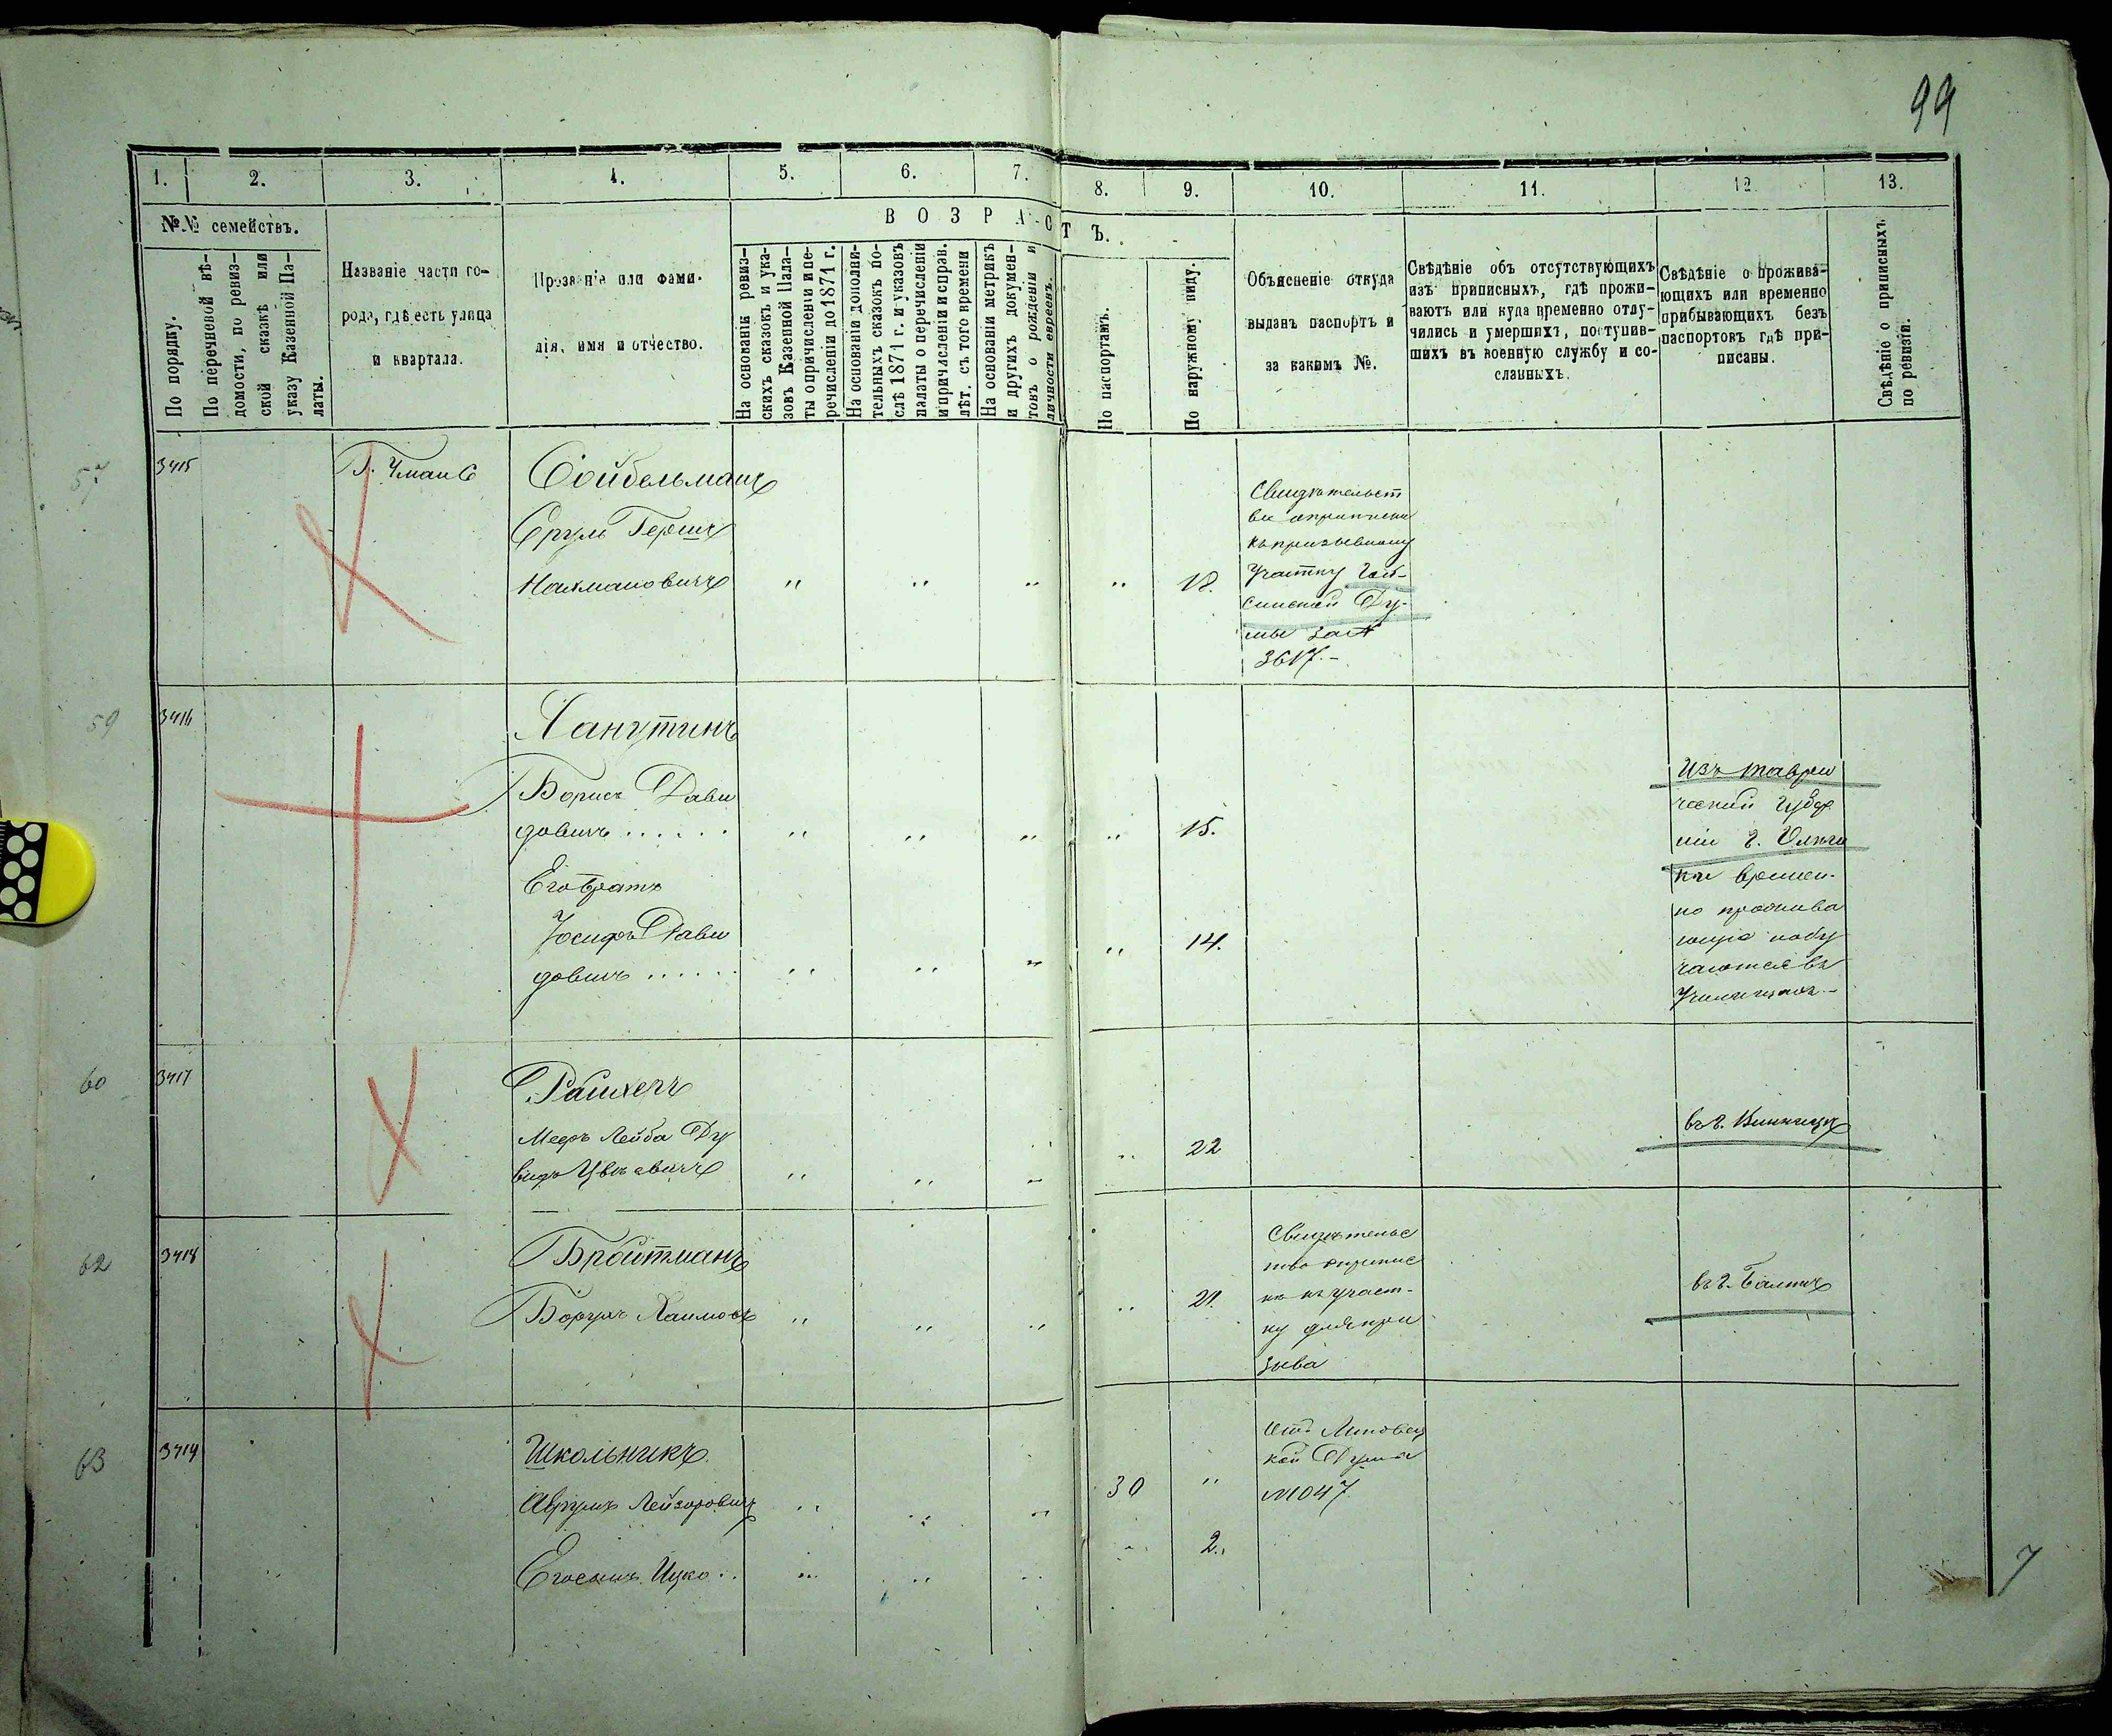 99
1. 2. 3. 4. 5. 6. 7. 8. 9. 10. 11. 12. 13.
№№ семействъ.
По порядку.
По перечневой вѣ-
домости, по ревиз-
ской сказкѣ или
указу Казенной Па-
латы.
Названіе части го-
рода, гдѣ есть улица
и квартала.
Прозваніе или фами-
лія, имя и отчество.
ВОЗРАСТЪ.
На основаніи ревиз-
скихъ сказокъ и ука-
зовъ Казенной Пала-
ты о причисленіи и пе-
речисленіи до 1871 г.
На основаніи дополни-
тельныхъ сказокъ по-
слѣ 1871 г. и указовъ
палаты о перечисленіи
и причисленіи и справ.
лѣт. съ того времени
На основаніи метрикъ
и другихъ докумен-
товъ о рожденіи и
личности евреевъ.
По паспортамъ.
По наружному виду.
Объясненіе откуда
выданъ паспортъ и
за какимъ №.
Свѣдѣніе объ отсутствующихъ
изъ приписныхъ, гдѣ прожи-
ваютъ или куда временно отлу-
чились и умершихъ, поступив-
шихъ въ военную службу и со-
сланныхъ.
Свѣдѣніе о прожива-
ющихъ или временно
прибывающихъ безъ
паспортовъ гдѣ при-
писаны.
Свѣдѣніе о приписныхъ
по ревизіи.
57
3415
Г. Умань
Сойбельманъ
Сруль Герш
Нахмановичъ " " " " 18.
Свидѣтельст
во о приписки
къ призывному
Участку Гай-
синской Ду-
мы за №
3617.-
59
3416
Ханутинъ
Борисъ Дави
довичъ ...... " " " " 15.
Его братъ
Іосифъ Дави
довичъ ...... " " " " 14.
Изъ Таври
ческой Губер
ніи г.
временно
но прожива
ющіе
чаются въ
Училищахъ.-
60
3417
Рашкеръ
Меръ Лейба Ду
видъ " " " " 22
въ г. Винницѣ
62
3418
Бройтманъ
Борухъ Хаимовъ " " " " 21.
Свидѣтельс
тво о припис
кѣ къ участ-
ку для при
зыва
въ г. Балтѣ
63
3419
Школьникъ
Аврумъ Лейзоровичъ " " " 30 "
Отъ Липовец
кой Думы
№1047
Его сынъ Ицко .. " " " " 2.
7